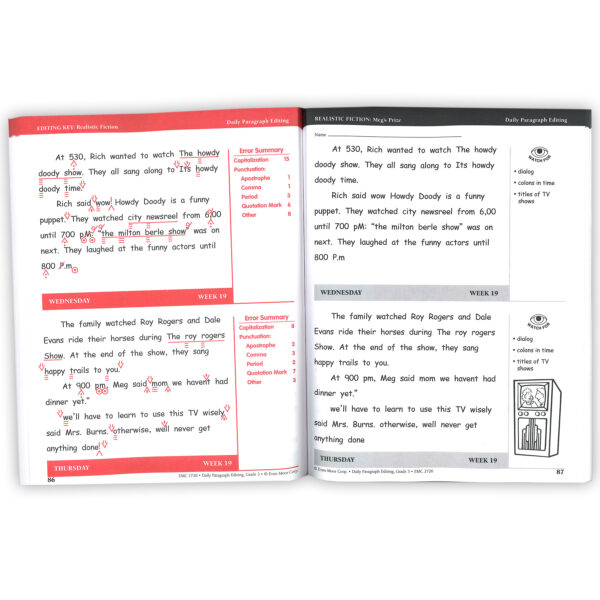 EDITING KEY: Realistic Fiction
Daily Paragraph Editing
At 530, Rich wanted to watch The howdy
doody show. They all sang along to Its howdy
doody time.
Rich said wow! Howdy Doody is a funny
puppet. They watched city newsreel from 6,00
until 700 pM: "the milton berle show" was on
next. They laughed at the funny actors until
800 P.m
Error Summary
Capitalization 15
Punctuation:
Apostrophe 1
Comma 1
Period 3
Quotation Mark 6
Other 8
WEDNESDAY
WEEK 19
The family watched Roy Rogers and Dale
Evans ride their horses during The roy rogers
Show. At the end of the show, they sang
happy trails to you.
At 900 pm, Meg said mom we havent had
dinner yet."
we'll have to learn to use this TV wisely
said Mrs. Burns. otherwise, well never get
anything done!
Error Summary
Capitalization 8
Punctuation:
Apostrophe 2
Comma 3
Period 2
Quotation Mark 7
Other 3
THURSDAY
WEEK 19
86
EMC 2720 • Daily Paragraph Editing, Grade 3 • © Evan-Moor Corp.
REALISTIC FICTION: Meg's Prize
Daily Paragraph Editing
Name
At 530, Rich wanted to watch The howdy
doody show. They all sang along to Its howdy
doody time.
Rich said wow Howdy Doody is a funny
puppet. They watched city newsreel from 6,00
until 700 pM: "the milton berle show" was on
next. They laughed at the funny actors until
800 P.m
WATCH FOR
• dialog
• colons in time
• titles of TV
shows
WEDNESDAY
WEEK 19
The family watched Roy Rogers and Dale
Evans ride their horses during The roy rogers
Show. At the end of the show, they sang
happy trails to you.
At 900 pm, Meg said mom we havent had
dinner yet."
we'll have to learn to use this TV wisely
said Mrs. Burns. otherwise, well never get
anything done
WATCH FOR
• dialog
• colons in time
• titles of TV
shows
THURSDAY
WEEK 19
© Evan-Moor Corp. • Daily Paragraph Editing, Grade 3 • EMC 2720
87